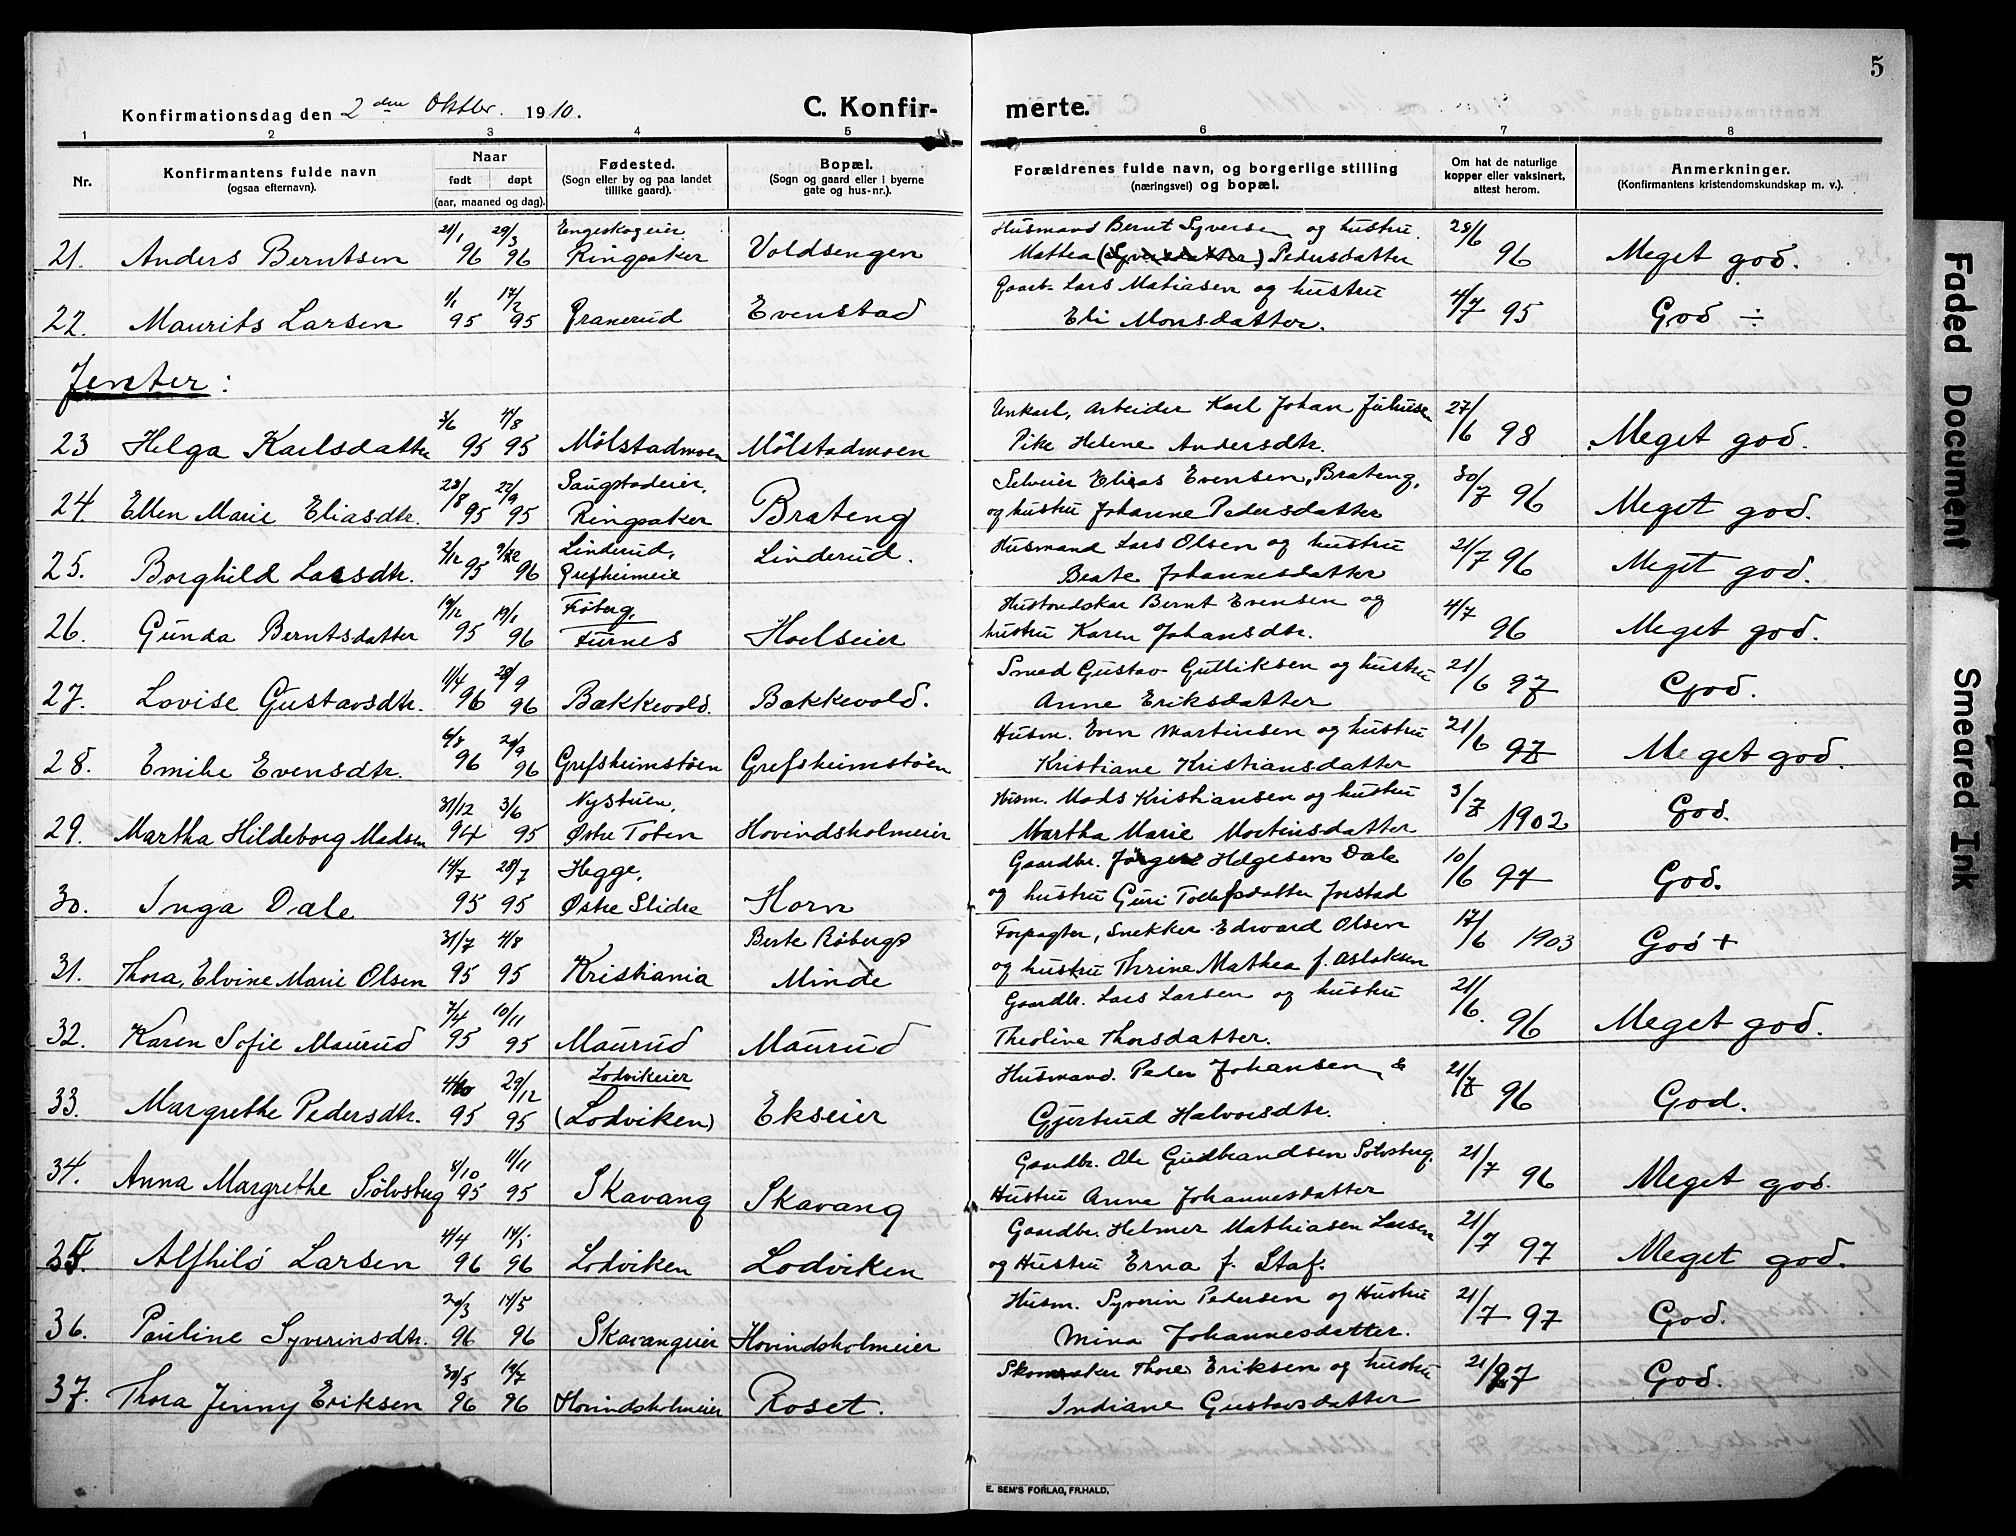 5
Konfirmationsdag den 2 den Oktbr. 1910. C. Konfirmerte.
1 2 3 4 5 6 7 8
Nr. Konfirmantens fulde navn (ogsaa efternavn). Naar født døpt (aar, maaned og dag). Fødested. (Sogn eller by og paa landet tillike gaard). Bopæl. (Sogn og gaard eller i byerne gate og hus-nr.). Forældrenes fulde navn, og borgerlige stilling (næringsvei) og bopæl. Om hat de naturlige kopper eller vaksinert, attest herom. Anmerkninger. (Konfirmantens kristendomskundskap m. v.).
21. Anders Berntsen 21/1 96 29/3 96 Engeskogeier Ringsaker Voldsengen Husmand Bernt Syversen og hustru Mathea (Syversdatter) Pedersdatter 28/6 96 Meget god.
22. Maurits Larsen 1/1 95 17/2 95 Granerud Evenstad Gaarb. Lars Matiasen og hustru Eli Monsdatter. 4/7 95 God ÷
Jenter:
23 Helga Karlsdatter 3/6 95 4/8 95 Mølstadmoen Mølstadmoen Unkarl, Arbeider Karl Johan Juliusen Pike Helene Andersdtr. 27/6 98 Meget god.
24. Ellen Marie Eliasdtr. 23/8 95 22/9 95 Saugstadeier, Ringsaker Brateng Selveier Elias Evensen, Brateng, og hustru Johanne Pedersdatter 30/7 96 Meget god.
25. Borghild Larsdtr. 2/12 95 96 Linderud, Grefsheimeie Linderud. Husmand Lars Olsen og hustru Beate Johannesdatter 21/7 96 Meget god.
26. Gunda Berntsdatter 19/12 95 19/1 96 Frøberg, Furnes Hoelseier Bernt Evensen og hustru Karen Johansdtr. 4/7 96 Meget god.
27. Lovise Gustavsdtr. 11/4 96 28/9 96 Bækkevold. Bækkevold. Smed Gustav Gulliksen og hustru Anne Eriksdatter 21/6 97 God.
28. Emilie Evensdtr. 6/8 96 29/9 96 Grefsheimstøen Grefsheimstøen Husm. Even Martinsen og hustru Kristiane Kristiansdatter 21/6 97 Meget god.
29. Martha Hildeborg Madsen 31/12 94 3/6 95 Nystuen, Østre Toten Hovindsholmeier Husm. Mads Kristiansen og hustru Martha Marie Martinsdatter 3/7 1902 God.
30. Inga Dale 14/7 95 28/7 95 Hegge, Østre Slidre Horn Gaardbr. Jørgen Helgesen Dale og hustru Guri Tollefsdatter Jorstad 10/6 97 God.
31. Thora, Elvine Marie Olsen 31/7 95 4/8 95 Kristiania Berte Røbergs Minde Forpagter, Snekker Edward Olsen og hustru Thrine Mathea f. Aslaksen 17/6 1903 God +
32. Karen Sofie Maurud 7/4 95 10/11 95 Maurud Maurud Gaardbr. Lars Larsen og hustru Theoline Thorsdatter. 21/6. 96 Meget god.
33. Margrethe Pedersdtr. 4/10 95 29/12 95 Lodvikeier (Lodviken) Ekseier Husmand. Peder Johansen & Gjertrud Halvorsdtr. 21/7 96 God.
34. Anna Margrethe Sølvsberg 8/10 95 11/11 95 Skavang Skavang Gaardbr. Ole Gudbrandsen Sølvsberg. Hustru Anne Johannesdatter 21/7 96 Meget god.
35. Alfhild Larsen 4/4 96 14/5 96 Lodviken Lodviken Gaardbr. Helmer Mathiasen Larsen og Hustru Erna f. Staf. 21/7 97 Meget god.
36. Pauline Syverinsdtr. 20/3 96 14/5 96 Skavangeier Hovindsholmeier Husm. Syverin Pedersen og Hustru Mina Johannesdatter. 21/7 97 God.
37. Thora Jenny Eriksen 30/5 96 19/7 96 Hovindsholmeier Roset. Skomaker Thore Eriksen og hustru Indiane Gustavsdatter 21/7 97 God.
E. SEM'S FORLAG, FR.HALD.
Faded Document
Smeared Ink